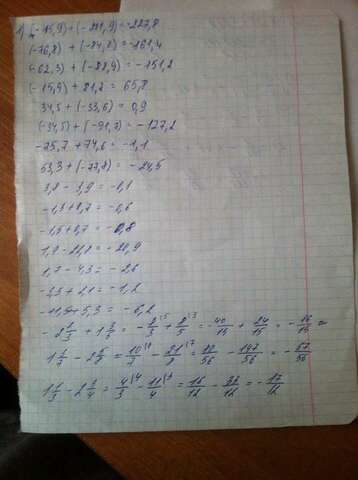 1) (-15,9) + (-211,9) = -227,8
(-76,8) + (-84,6) = -161,4
(-62,3) + (-88,9) = -151,2
(-15,9) + 81,7 = 65,8
34,5 + (-33,6) = 0,9
(-34,5) + (-91,7) = -127,2
-75,7 + 74,6 = -1,1
53,3 + (-77,8) = -24,5
3,8 - 3,9 = -1,1
-1,3 + 0,7 = -0,6
-1,5 + 0,7 = -0,8
1,9 - 22,8 = -20,9
1,7 - 4,3 = -2,6
-3,3 + 2,1 = -1,2
+ 5,3 = -6,2
-2 2/3 + 1 3/5 = -8/3 + 8/5 = -40/15 + 24/15 = -16/15 =
= 10/7 - 21/8 = 80/56 - 147/56 = -67/56
1 1/3 - 2 3/4 = 4/3 - 11/4 = 16/12 - 33/12 = -17/12